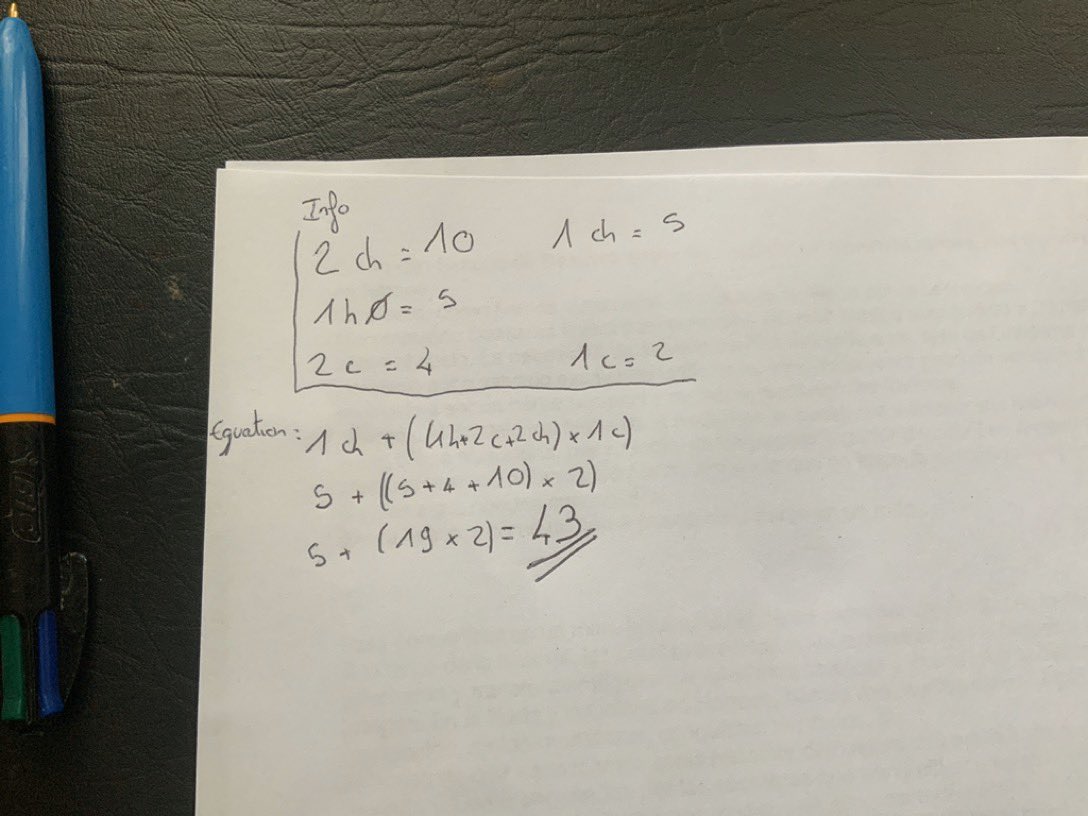 Info
2 ch = 10 1 ch = 5
1 h = 5
2 c = 4 1 c = 2
Equation: 1 ch + ((1h+2c+2ch) × 1c)
5 + ((5+4+10) × 2)
5 + (19 × 2) = 43
BIC